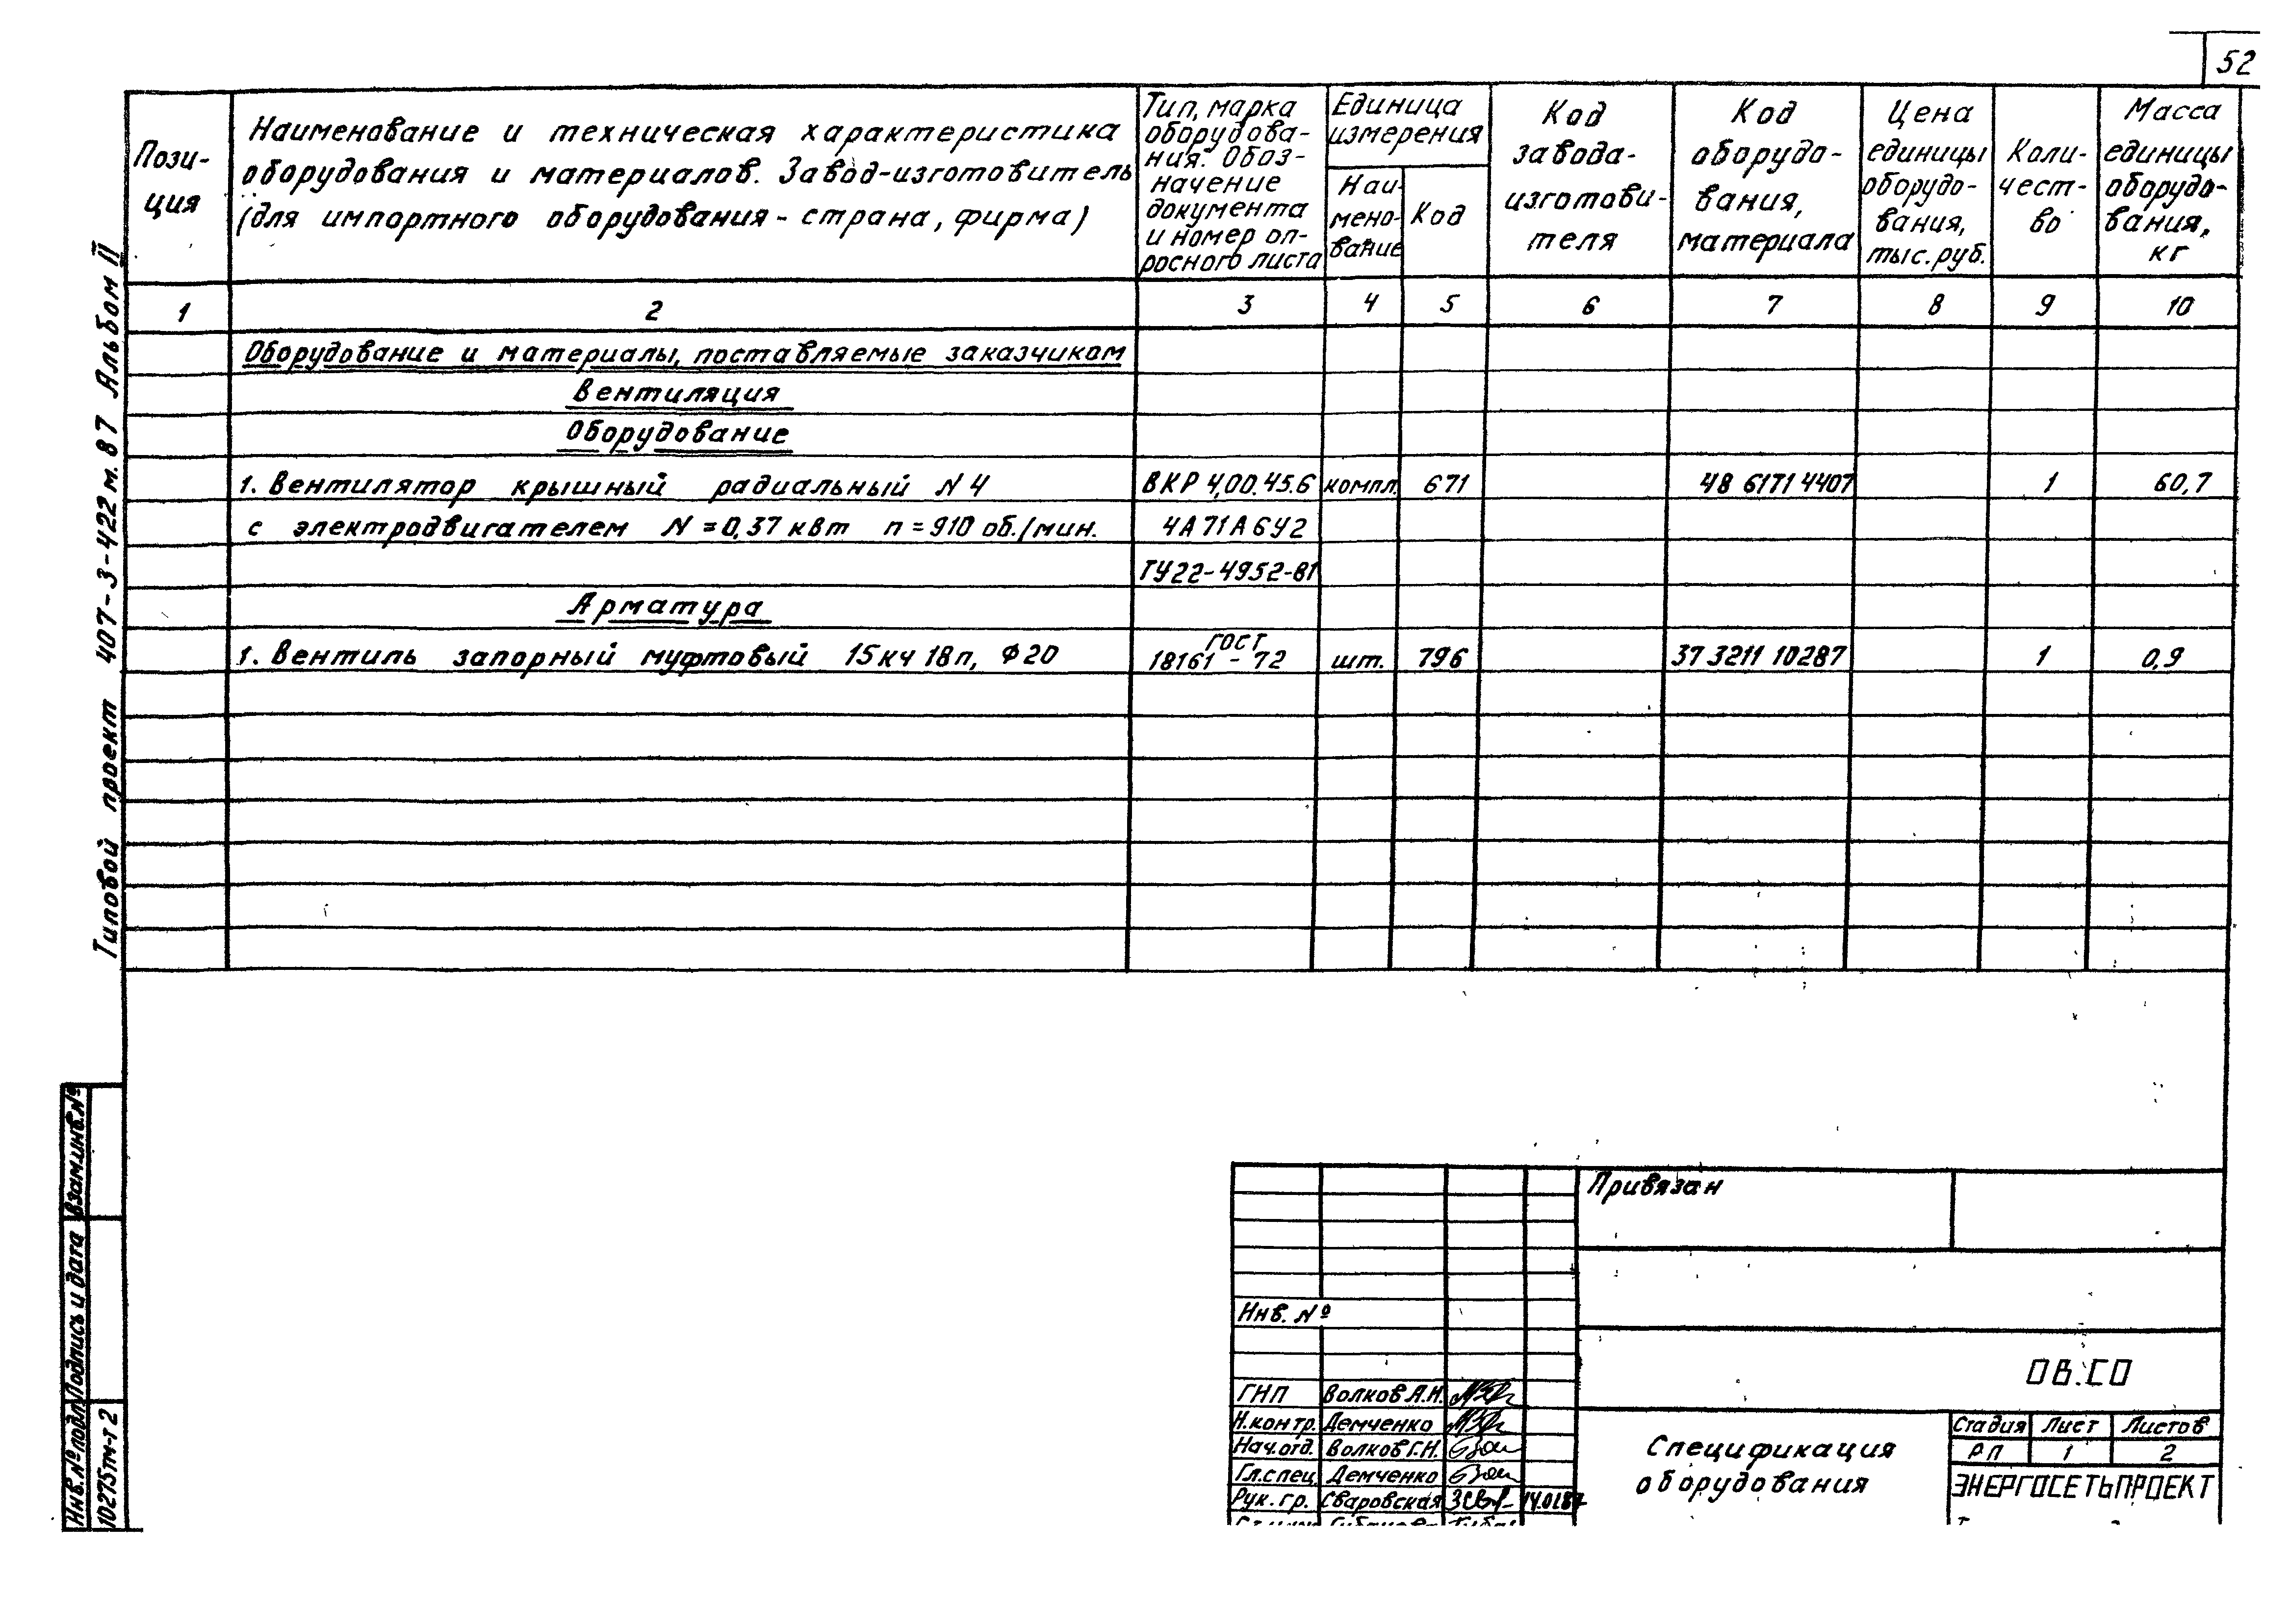 52
Пози-
ция
Наименование и техническая характеристика
оборудования и материалов. Завод-изготовитель
(для импортного оборудования - страна, фирма)
Тип, марка
оборудова-
ния. Обоз-
начение
документа
и номер оп-
росного листа
Единица
измерения
Наи-
мено-
вание
Код
Код
завода-
изготови-
теля
Код
оборудо-
вания,
материала
Цена
единицы
оборудо-
вания,
тыс. руб.
Коли-
чест-
во
Масса
единицы
оборудо-
вания,
кг
1 2 3 4 5 6 7 8 9 10
Оборудование и материалы, поставляемые заказчиком
Вентиляция
Оборудование
1. Вентилятор крышный радиальный N 4 ВКР 4,00.45.6 компл. 671 48 6171 4407 1 60,7
с электродвигателем N = 0,37 квт n = 910 об./мин. 4А71А6У2
ТУ22-4952-81
Арматура
1. Вентиль запорный муфтовый 15кч 18п, Ф20 ГОСТ
18161 - 72 шт. 796 37 3211 10287 1 0,9
Типовой проект 407-3-422 м. 87 Альбом II
Взам.инв.№
Подпись и дата
Инв.№ подл.
10275тм-т2
Привязан
Инв. №
ОВ.СО
ГНП Волков А.Н.
Н.контр. Демченко
Нач.отд. Волков Г.Н.
Гл.спец. Демченко
Рук. гр. Сваровская 14.01.87
Спецификация
оборудования
Стадия Лист Листов
РП 1 2
ЭНЕРГОСЕТЬПРОЕКТ